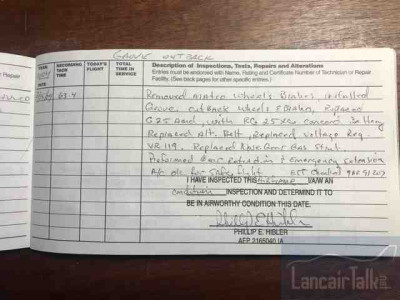 GROVE OUTBACK
YEAR
RECORDING TACH TIME
TODAY'S FLIGHT
TOTAL TIME IN SERVICE
Description of Inspections, Tests, Repairs and Alterations
Entries must be endorsed with Name, Rating and Certificate Number of Technician or Repair Facility. (See back pages for other specific entries.)
63.4
Removed Wheels & Brakes, installed
Grove Wheels & Brakes, Replaced
with RG 25 Battery
Replaced Alt. Belt, Replaced Voltage Reg.
VR 119, Replaced Nose Gear Gas Strut.
Performed Gear Retraction & emergency extension
for safe flight
I HAVE INSPECTED THIS IAW AN
condition INSPECTION AND DETERMINED IT TO
BE IN AIRWORTHY CONDITION THIS DATE.
PHILLIP E. HIBLER
AEP 2165040 IA
LancairTalk